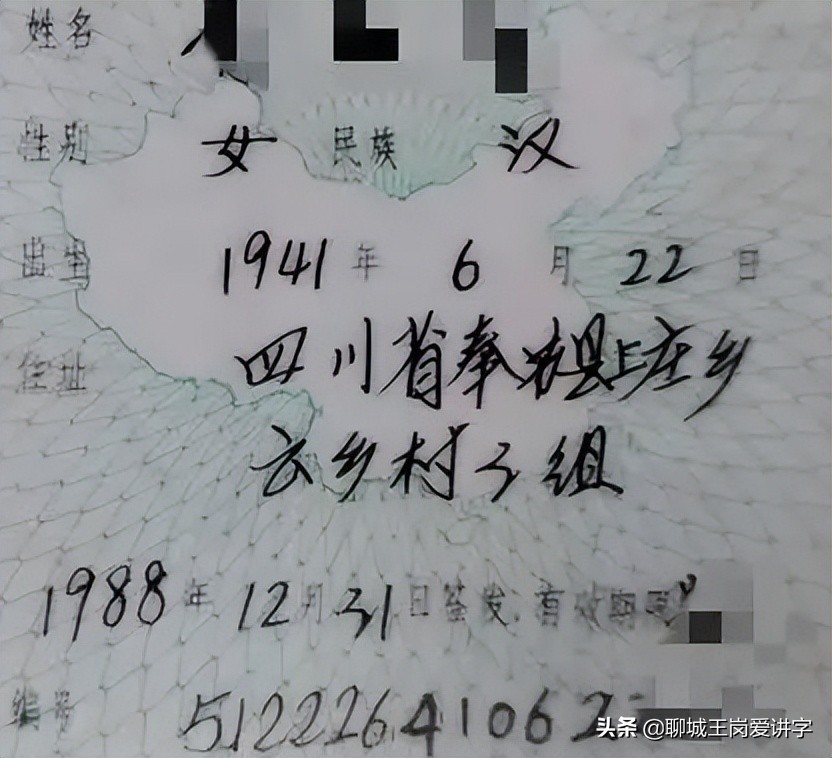 姓名
性别 女 民族 汉
出生 1941年 6月 22日
住址 四川省奉节县上庄乡
云乡村3组
1988年12月31日签发,有效期
编号 51222641062
头条 @聊城王岗爱讲字